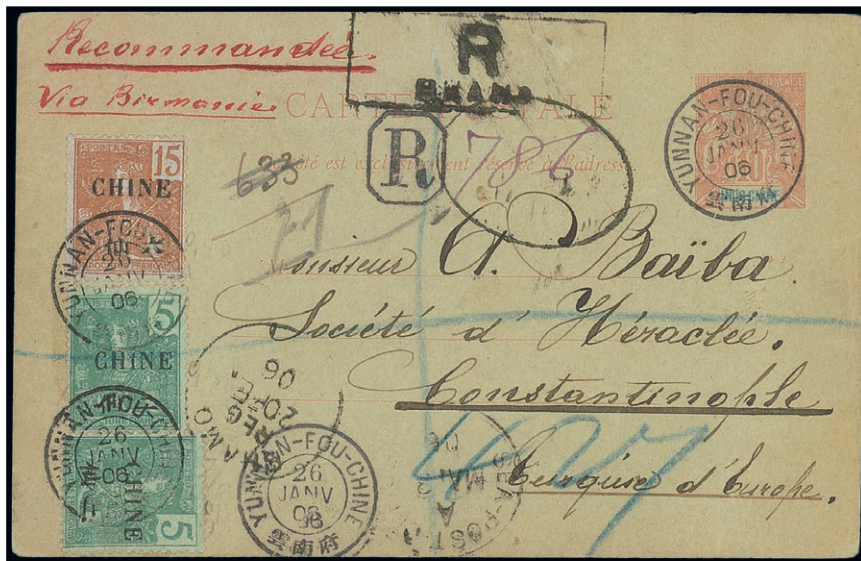 Recommandée.
Via Birmanie.
R
BHAMO
CARTE POSTALE
Ce côté est exclusivement réservé à l'adresse.
R
784
633
YUNNAN-FOU-CHINE
26
JANV
06
雲南府
INDO-CHINE
15
CHINE
YUNNAN-FOU-CHINE
26
JANV
06
5
CHINE
YUNNAN-FOU-CHINE
26
JANV
06
CHINE
5
Monsieur A. Baïba
Société d'Héraclée.
Constantinople
Turquie d'Europe.
REG
20
06
YUNNAN-FOU-CHINE
26
JANV
06
雲南府
SEA POST
A
MAR
06